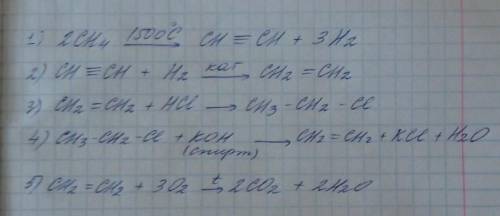 1) 2CH₄ 1500°C → CH ≡ CH + 3H₂
2) CH ≡ CH + H₂ кат → CH₂ = CH₂
3) CH₂ = CH₂ + HCl → CH₃ - CH₂ - Cl
4) CH₃ - CH₂ - Cl + KOH (спирт) → CH₂ = CH₂ + KCl + H₂O
5) CH₂ = CH₂ + 3O₂ t → 2CO₂ + 2H₂O